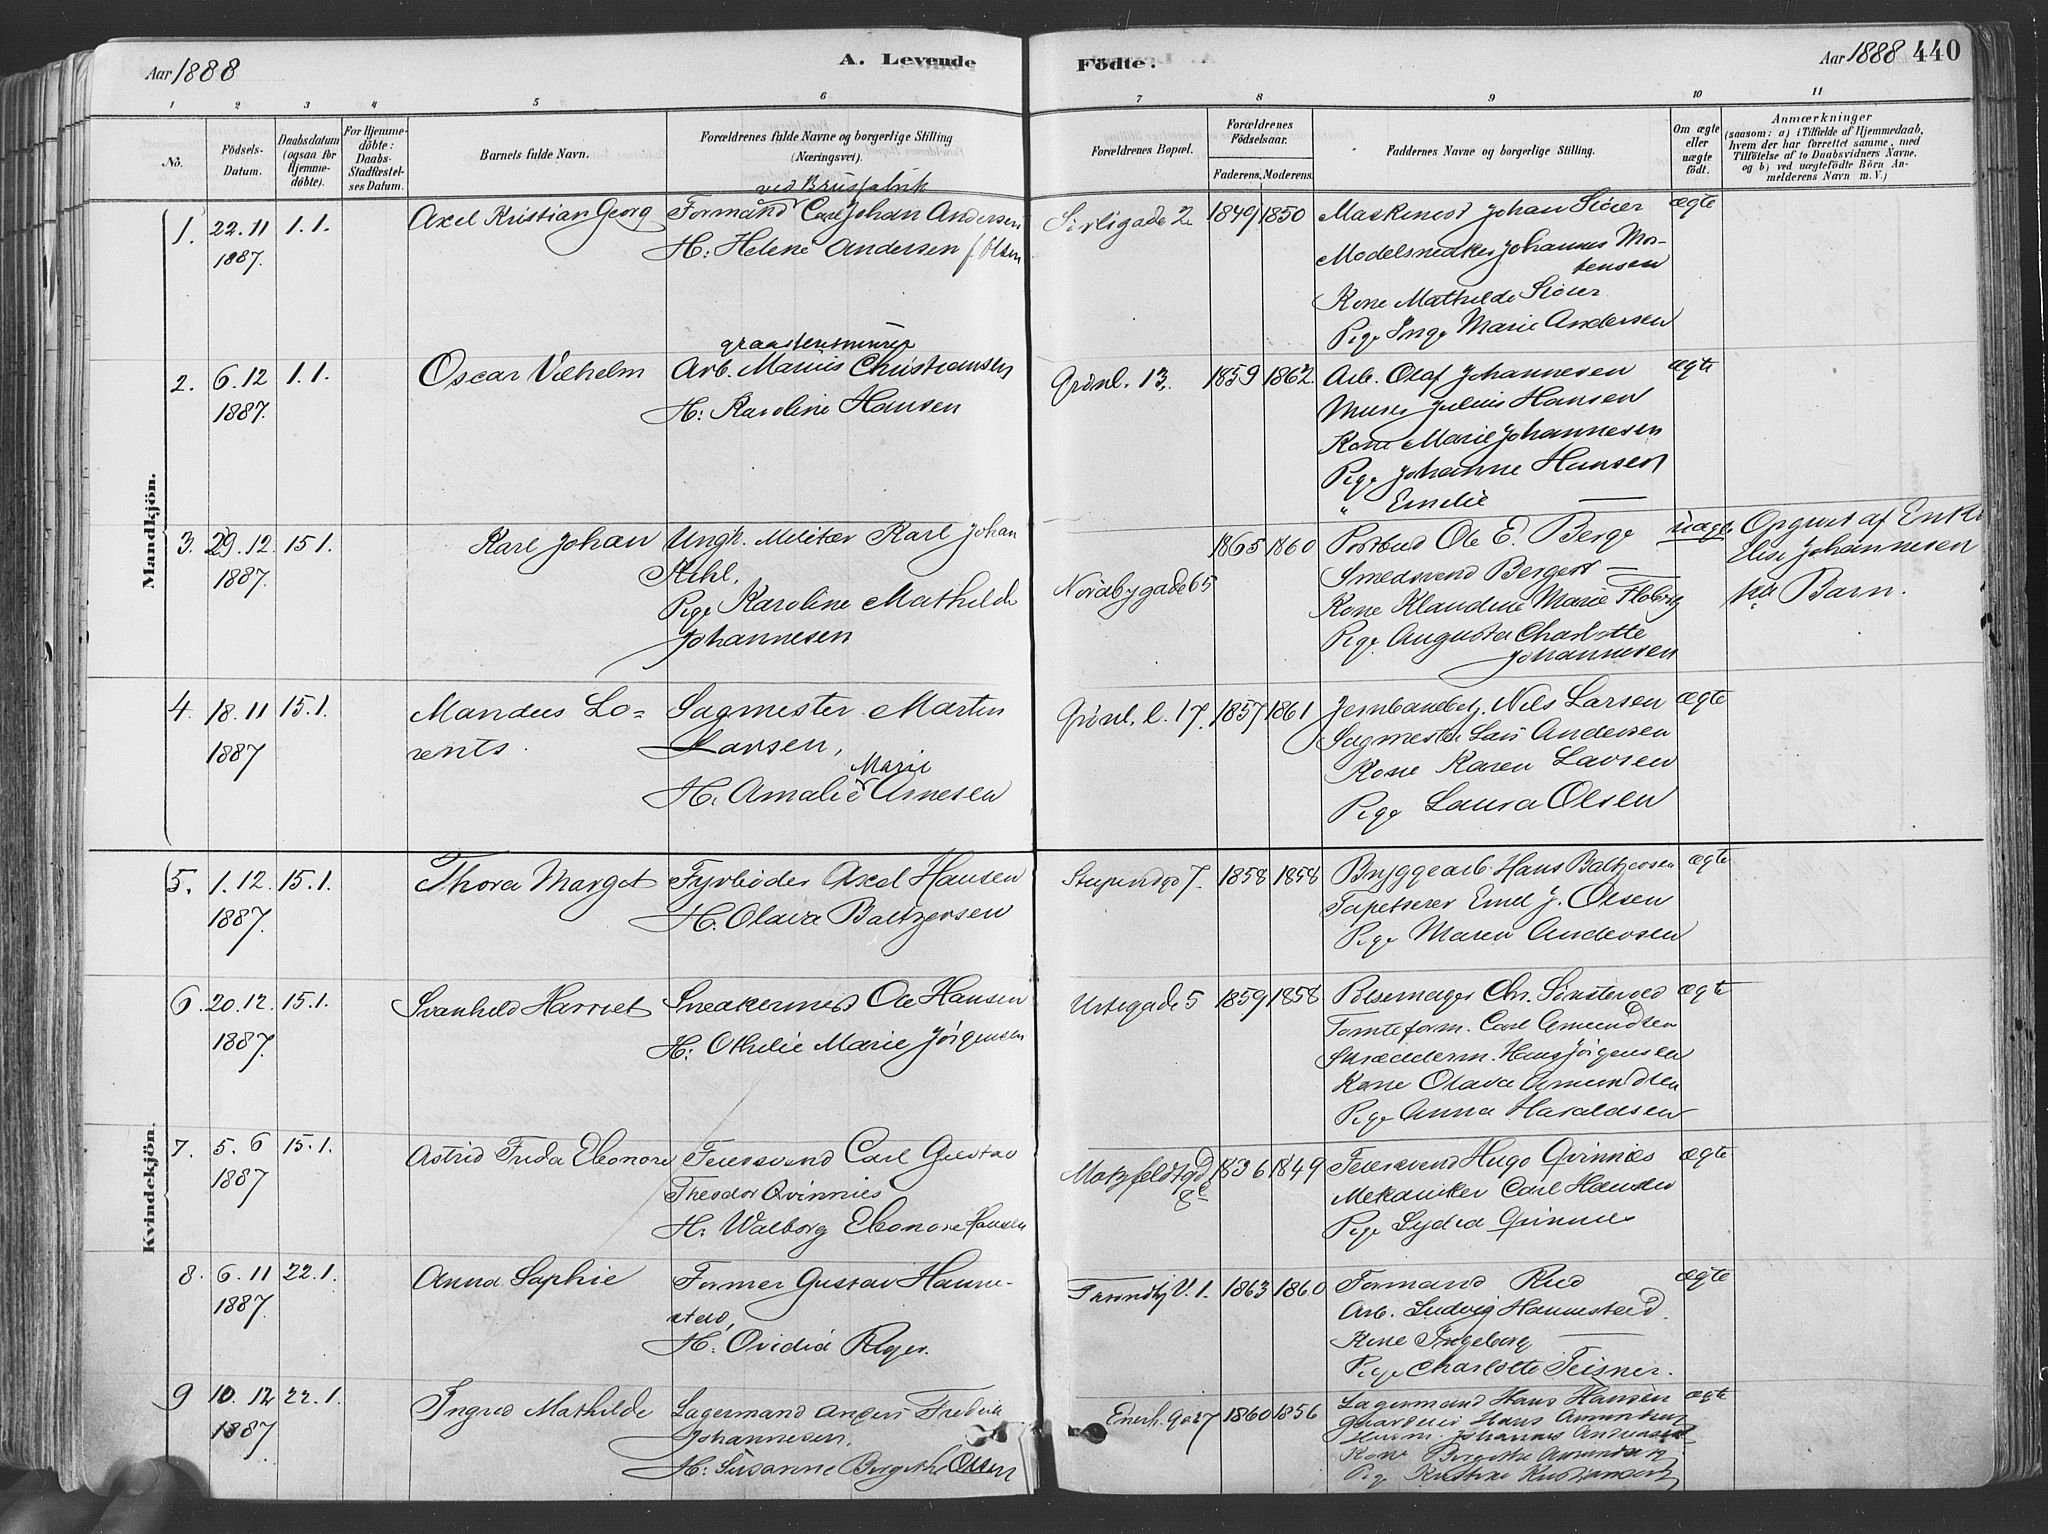 Aar 1888
A. Levende
Födte.
Aar 1888 440
1 2 3 4 5 6 7 8 9 10 11
No.
Födsels-
Datum.
Daabsdatum
(ogsaa for
Hjemme-
döbte).
For Hjemme-
döbte:
Daabs-
Stadfæstel-
ses Datum.
Barnets fulde Navn.
Forældrenes fulde Navne og borgerlige Stilling
(Næringsvei).
Forældrenes Bopæl.
Forældrenes
Födselsaar.
Faderens. Moderens.
Faddernes Navne og borgerlige Stilling.
Om ægte
eller
uægte
födt.
Anmærkninger
(saasom: a) i Tilfælde af Hjemmedaab,
hvem der har forrettet samme, med
Tilföielse af to Daabsvidners Navne,
og b) ved uægtefödte Börn An-
melderens Navn m. V.)
Mandkjön.
1. 22.11 1.1. Axel Kristian Georg
1887.
ved Brusfabrik
Formand Carl Johan Andersen
H: Helene Andersen f. Olsen
2 1849 1850
Johan
Modelsnedker Johannes Mor-
tensen
Kone Mathilde
Pige Inga Marie Andersen
ægte
2. 6.12 1.1. Oscar Vilhelm
1887.
graastensmurer
Arb. Marius Christiansen
H: Karoline Hansen
Grönl. 13. 1859 1862.
Arb. Olaf Johannesen
Murer Julius Hansen
Kone Marie Johannesen
Pige Johanne Hansen
" Emilie —
ægte
3. 29.12. 15 1. Karl Johan
1887.
Ungk. Militær Karl Johan
Pige Karoline Mathilde
Johannesen
Nordbygade 65 1865 1860
Postbud Ole E. Berge
Smedsvend Berger —
Kone Klaudine Marie
Pige Augusta Charlotte
Johannesen
uægte
Opgivet af Enke
Elise Johannesen
Barn.
4. 18.11 15.1. Mandus Lo=
1887 rents.
Sagmester Martin
Larsen,
Marie
H. Amalie Arnesen
Grönl. l. 17. 1857 1861
Jernbanebetj. Nils Larsen
Sagmester Lars Andersen
Kone Karen Larsen
Pige Laura Olsen
ægte
Kvindekjön.
5. 1.12. 15.1. Thora Margot
1887.
Fyrböder Axel Hansen
H. Olava Baltzersen
7. 1858 1858
Bryggearb Hans Baltzersen
Tapetserer Emil J. Olsen
Pige Maren Andersen
ægte
6. 20.12. 15.1. Svanhild Harriet
1887.
Snedkermest Ole Hansen
H: Othilie Marie Jörgensen
Urtegade 5 1859 1858
Chr.
Tomteform. Carl Amundsen
Skrædderm. Hans Jörgensen
Kone Olava Amundsen
Pige Anna Haraldsen
ægte
7. 5.6 15.1. Astrid Frida Eleonore
1887
Feiersvend Carl Gustav
Theodor Qvinnies
H. Walborg Eleonore Hansen
Motzfeldtgd 1836 1849
Feiersvend Hugo Qvinnies
Mekaniker Carl Hansen
Pige Lydia Qvinnies
ægte
8. 6.11 22.1. Anna Sophie
1887.
Former Gustav Hanne-
sted,
H. Ovidia
V. 1. 1863 1860
Formand Rud
Arb. Ludvig Hannestad.
Kone Ingeborg —
Pige Charlotte Teisner.
ægte
9 10.12 22.1. Ingrid Mathilde
1887.
Lagermand Anders Fredrik
Johannesen,
H: Susanne Bergithe Olsen
Enerh. 1860 1856
Lagermand Hans Hansen
Hans Amundsen
Johannes Andreasen
Kone Bergithe Amundsen
Pige Kristine Kristiansen
ægte